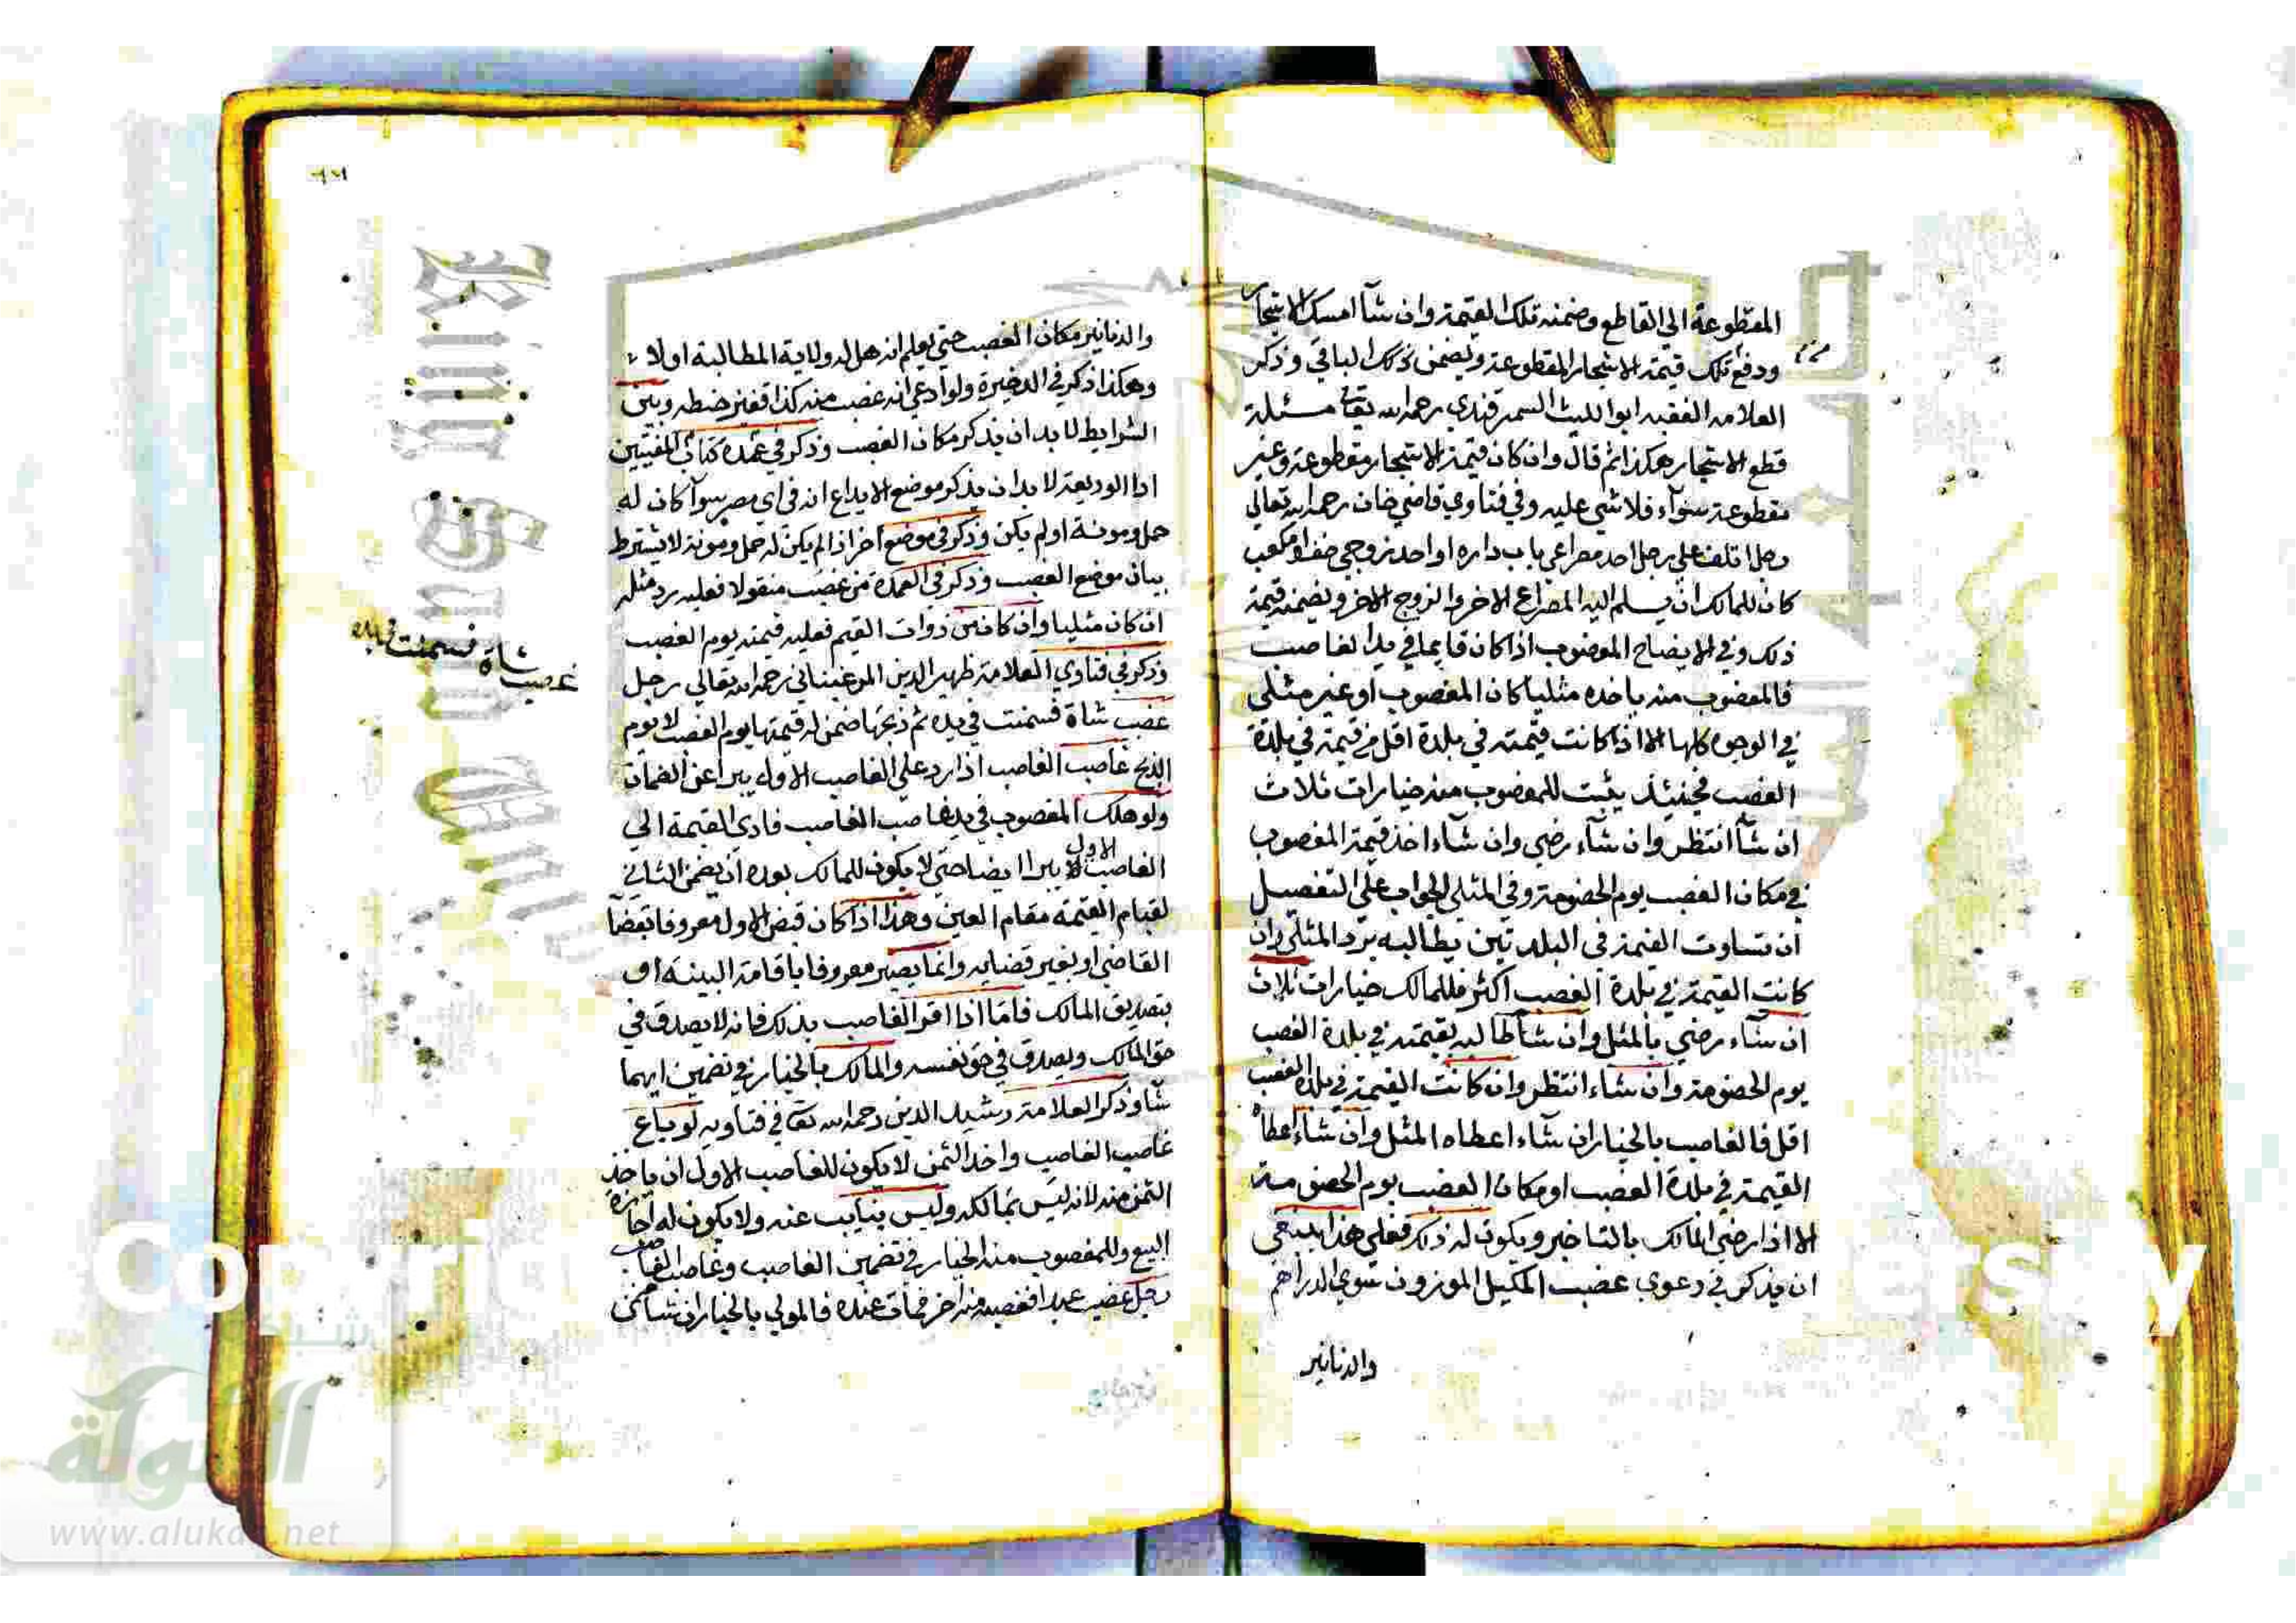 المقطوعة الي القاطع وضمنه تلك القيمة وان شآ امسك الاشجار
ودفع تلك قيمة الاشجار المقطوعة ويضمن كذلك الباقي وذكر
العلامه الفقيه ابوا الليث السمرقندي رحمه الله تعالى مسئلة
قطع الاشجار هكذا ثم قال وان كان قيمة الاشجار مقطوعة وغير
مقطوعة سوآء فلا شي عليه وفي فتاوي قاضي خان رحمه الله تعالي
رجل اتلف علي رجل احد مصراعي باب داره او احد زوجي خف او مكعب
كان للمالك ان يسلم اليه المصراع الاخر والزوج الاخر ويضمنه قيمة
ذلك وفي الايضاح المغصوب اذا كان قايما في يد الغاصب
فالمغصوب منه ياخذه مثليا كان المغصوب او غير مثلي
في الوجوه كلها الا اذا كانت قيمته في بلدة اقل من قيمته في بلدة
الغصب فحينئذ يثبت للمغصوب منه خيارات ثلاث
ان شآ انتظر وان شآء رضي وان شآء اخذ قيمة المغصوب
في مكان الغصب يوم الخصومة وفي المثلي الجواب علي التفصيل
ان تساوت القيمة في البلدتين يطالبه برد المثلي وان
كانت القيمة في بلدة الغصب اكثر فللمالك خيارات ثلاث
ان شآء رضي بالمثل وان شآ طالبه بقيمته في بلدة الغصب
يوم الخصومة وان شاء انتظر وان كانت القيمة في بلدة الغصب
اقل فالغاصب بالخيار ان شآء اعطاه المثل وان شآء اعطا
القيمة في بلدة الغصب او مكان الغصب يوم الخصومة
الا اذا رضي المالك بالتاخير ويكون له ذلك فعلي هذا ينبغي
ان يذكر في دعوي غصب المكيل الموزون سوي الدراهم
والدنانير
والدنانير مكان الغصب حتي يعلم انه هل له ولاية المطالبة اولا
وهكذا ذكر في الذخيرة ولو ادعي انه غصب منه كذا قفيز حنطه وبين
الشرايط لا بد ان يذكر مكان الغصب وذكر في عمدة كتاب المفتيين
اذا الوديعة لا بد ان يذكر موضع الايداع انه في اي مصر سوآ كان له
حمل ومونة اولم يكن وذكر في موضع اخر اذا لم يكن له حمل ومونة لا يشترط
بيان موضع الغصب وذكر في العمدة من غصب منقولا فعليه رد مثله
ان كان مثليا وان كان من ذوات القيم فعليه قيمته يوم الغصب
وذكر في فتاوي العلامة ظهير الدين المرغيناني رحمه الله تعالي رجل
غصب شاة فسمنت في يده ثم ذبحها ضمن له قيمتها يوم الغصب لا يوم
الذبح غاصب الغاصب اذا رد علي الغاصب الاول يبرا عن الضمان
ولو هلك المغصوب في يد غاصب الغاصب فادي القيمة الي
الغاصب الاول يبرا ايضا حتي لا يكون للمالك بعده ان يضمن الثاني
لقيام القيمة مقام العين وهذا اذا كان قبض الاول معروفا بقضآ
القاضي او بغير قضايه وانما يصير معروفا باقامة البينة او
بتصديق المالك فاما اذا اقر الغاصب بذلك فانه لا يصدق في
حق المالك ويصدق في حق نفسه والمالك بالخيار في تضمين ايهما
شآ وذكر العلامة رشيد الدين رحمه الله تعا في فتاويه لو باع
غاصب الغاصب واخذ الثمن لا يكون للغاصب الاول ان ياخذ
الثمن منه لانه ليس بمالكه وليس بنايب عنه ولا يكون له اجازة
البيع وللمغصوب منه الخيار في تضمين الغاصب وغاصب الغاصب
رجل غصب عبدا فغصبه منه اخر فمات عنده فالمولي بالخيار ان شآ ضمن
غصب شاة فسمنت في يده
www.alukah.net
الألوكة